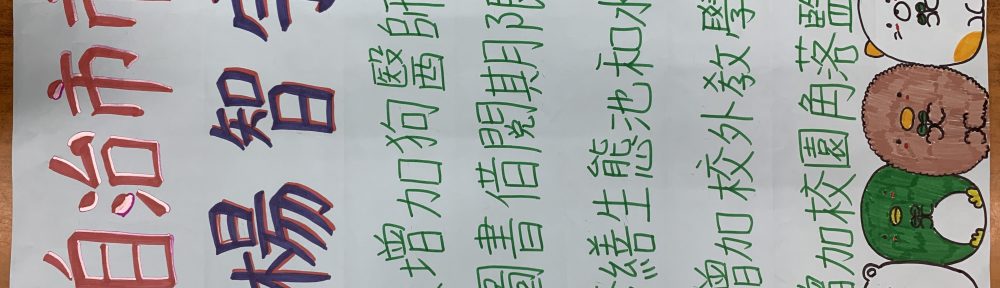 自治市市
楊智
增加狗醫師
圖書借閱期限
繕生態池和水
增加校外教學
增加校園角落監